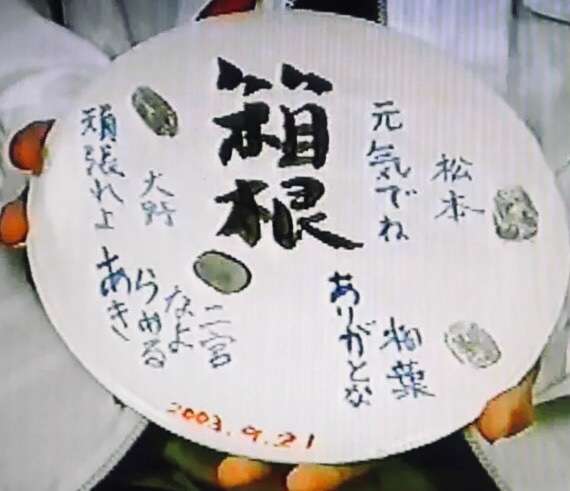 箱根
元気でね
松本
ありがとな
相葉
頑張れよ
大野
あき
らめる
なよ
二宮
2003.9.21